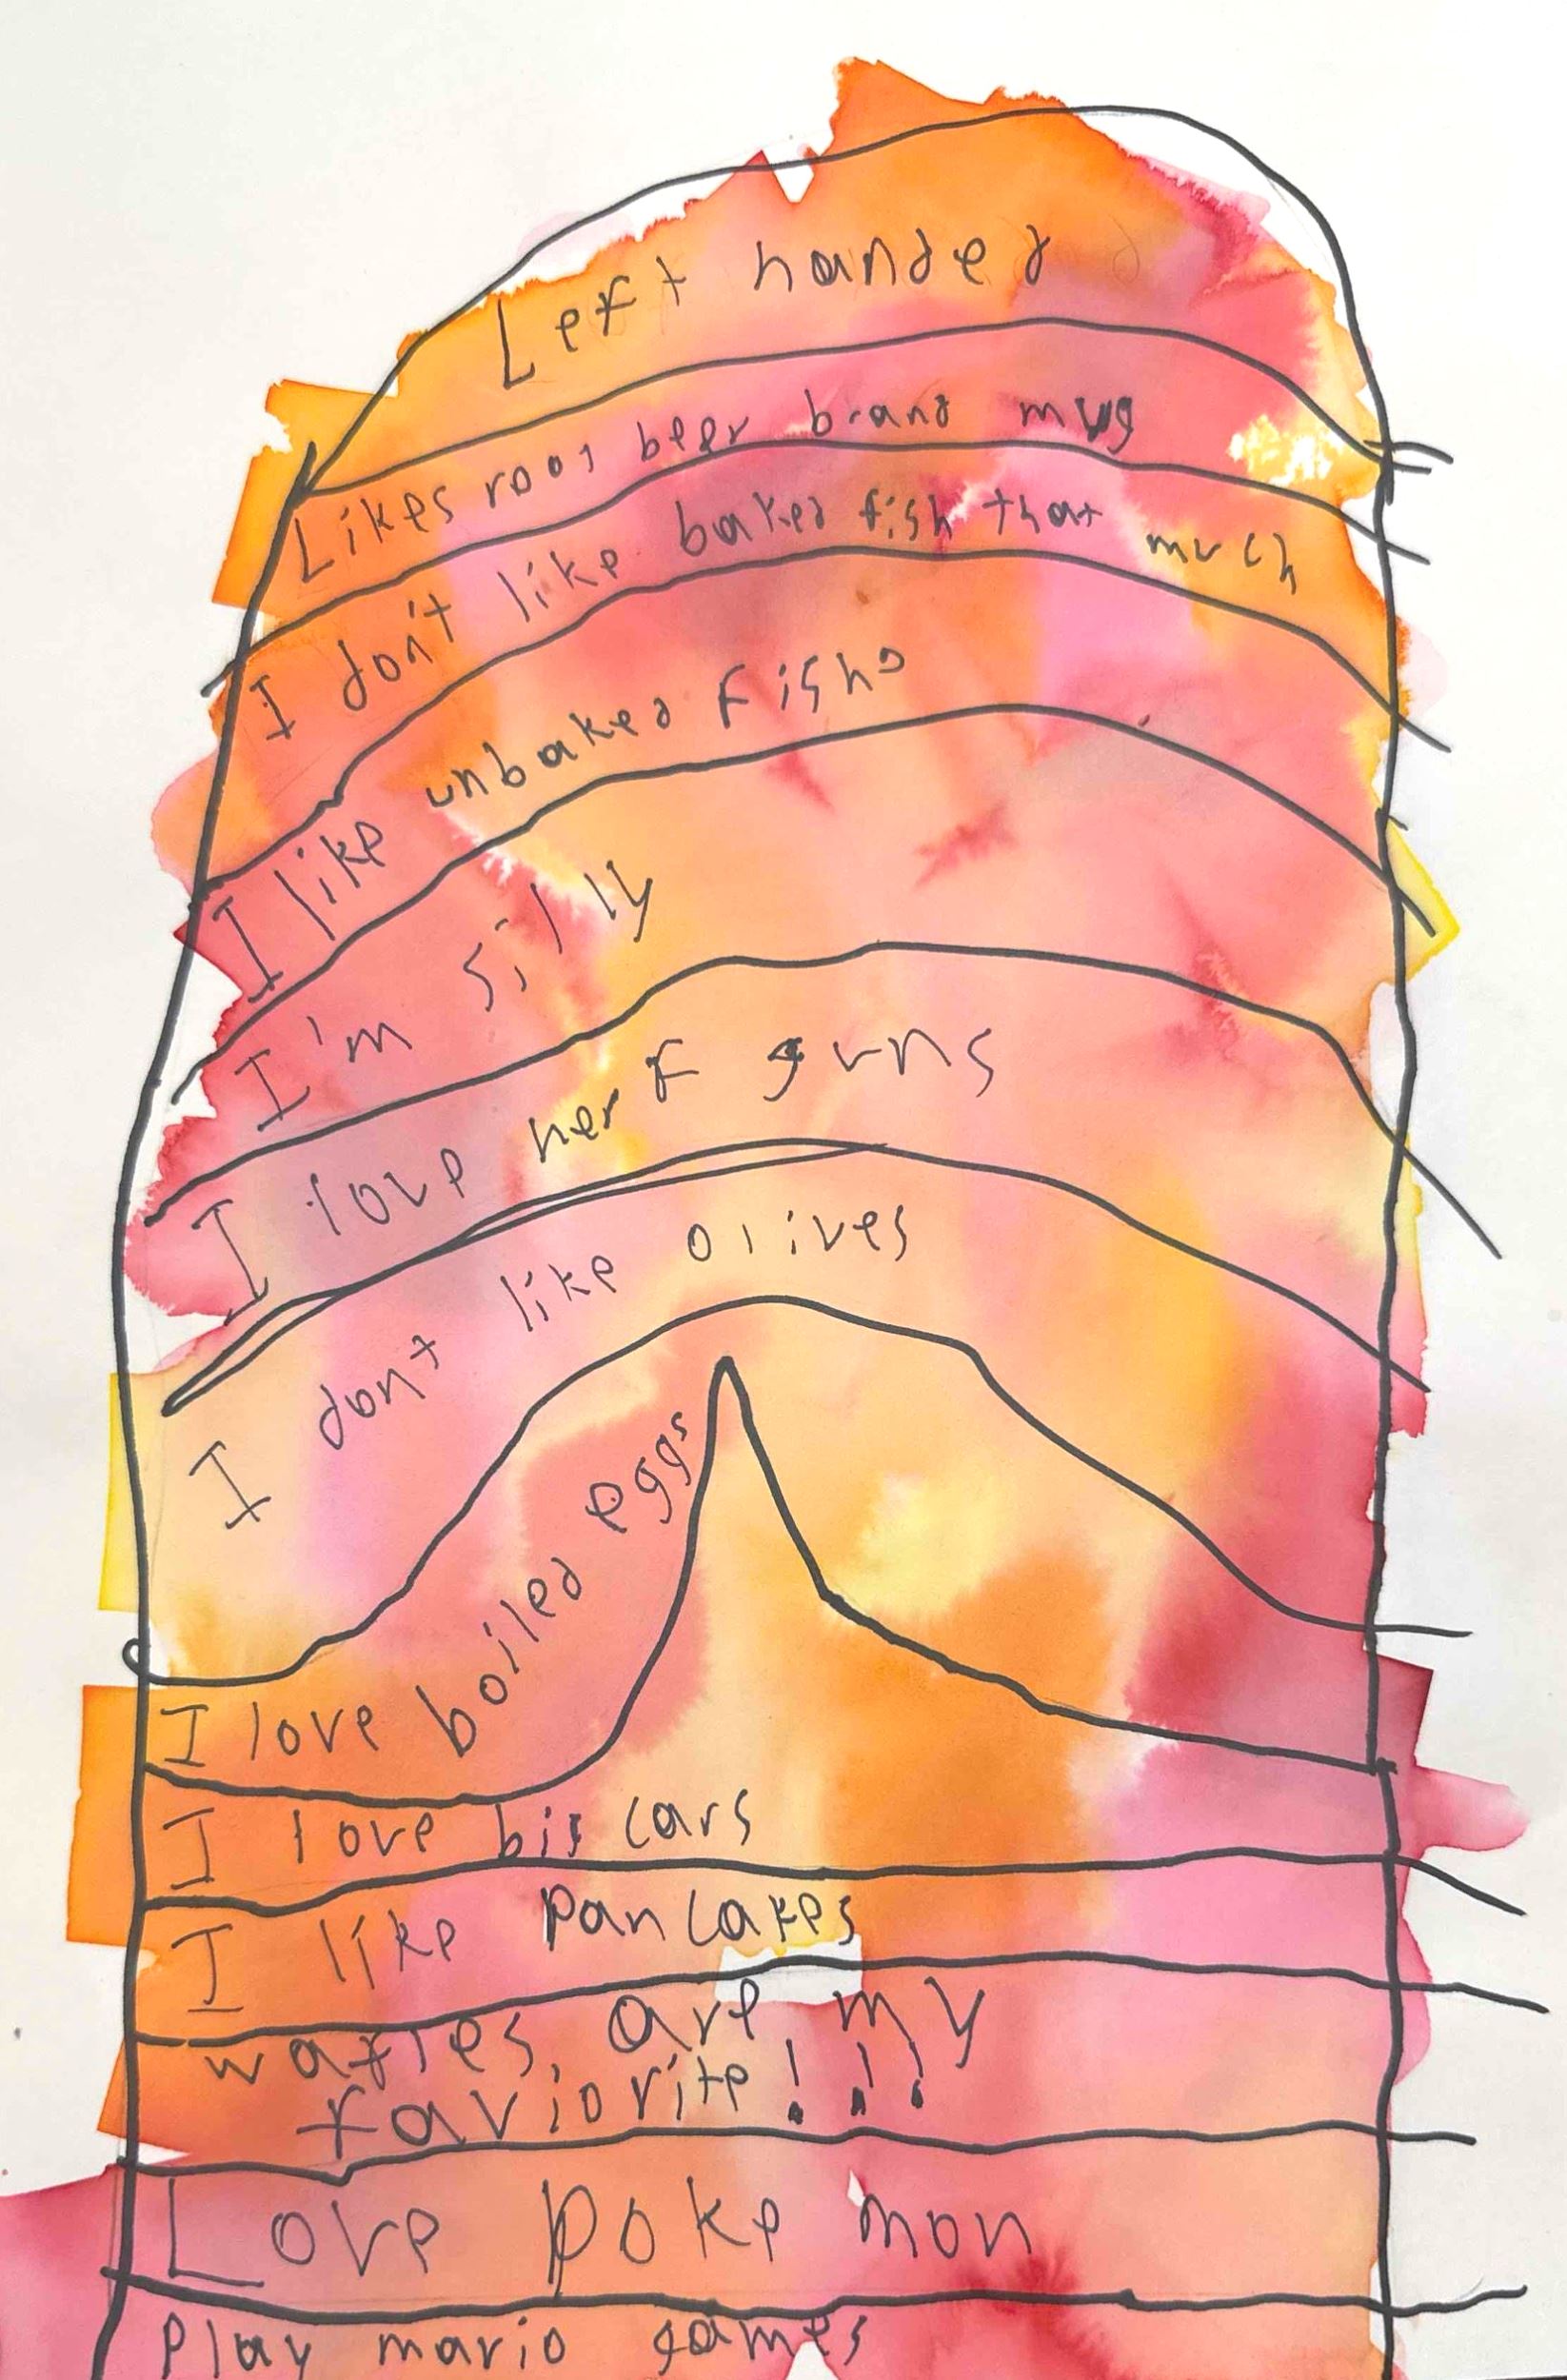 Left handed
Likes root beer brand mug
I don't like baked fish that much
I like unbaked Fish
I'm silly
I love nerf guns
I dont like olives
I love boiled eggs
I love big cars
I like pancakes
wafles are my
faviorite!!!
Love pokemon
Play mario games